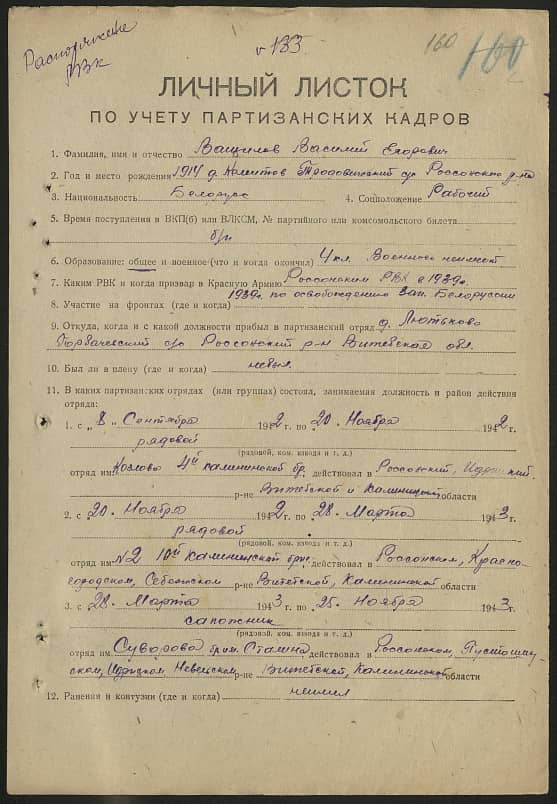 Распоряжение
РВК
v 133
160
160
ЛИЧНЫЙ ЛИСТОК
ПО УЧЕТУ ПАРТИЗАНСКИХ КАДРОВ
1. Фамилия, имя и отчество Ващилов Василий Егорович
2. Год и место рождения 1914 д. с/с Россонского р-на
3. Национальность Белорусс 4. Соцположение Рабочий
5. Время поступления в ВКП(б) или ВЛКСМ, № партийного или комсомольского билета
б/п
6. Образование: общее и военное (что и когда окончил) 4 кл. Военного неимеет
7. Каким РВК и когда призван в Красную Армию Россонским РВК в 1939г.
8. Участие на фронтах (где и когда) 1939г. по освобождению Зап. Белоруссии
9. Откуда, когда и с какой должности прибыл в партизанский отряд д. Лютьково
Горбачевский с/с Россонский р-н Витебская обл.
10. Был ли в плену (где и когда) небыл
11. В каких партизанских отрядах (или группах) состоял, занимаемая должность и район действия
отряда:
1. с „ 8 „ Сентября 1942 г. по 20 Ноября 1942 г.
рядовой
(рядовой, ком. взвода и т. д.)
отряд им. Козлово 4й Калининской бр. действовал в Россонский, Идрицкий
р-не Витебской и Калининской области
2. с 20 Ноября 1942 г. по 28 Марта 1943 г.
рядовой
(рядовой, ком. взвода и т. д.)
отряд им. №2 10й Калининской бриг действовал в Россонском, Красно-
городском, Себежском р-не Витебской, Калининской области
3. с 28 Марта 1943 г. по 25 Ноября 1943 г.
сапожник
(рядовой, ком. взвода и т. д.)
отряд им. Суворова бр им. Сталина действовал в Россонском, Пустошин-
ском, Идрицком Невельском р-не Витебской, Калининской области
12. Ранения и контузии (где и когда) неимел